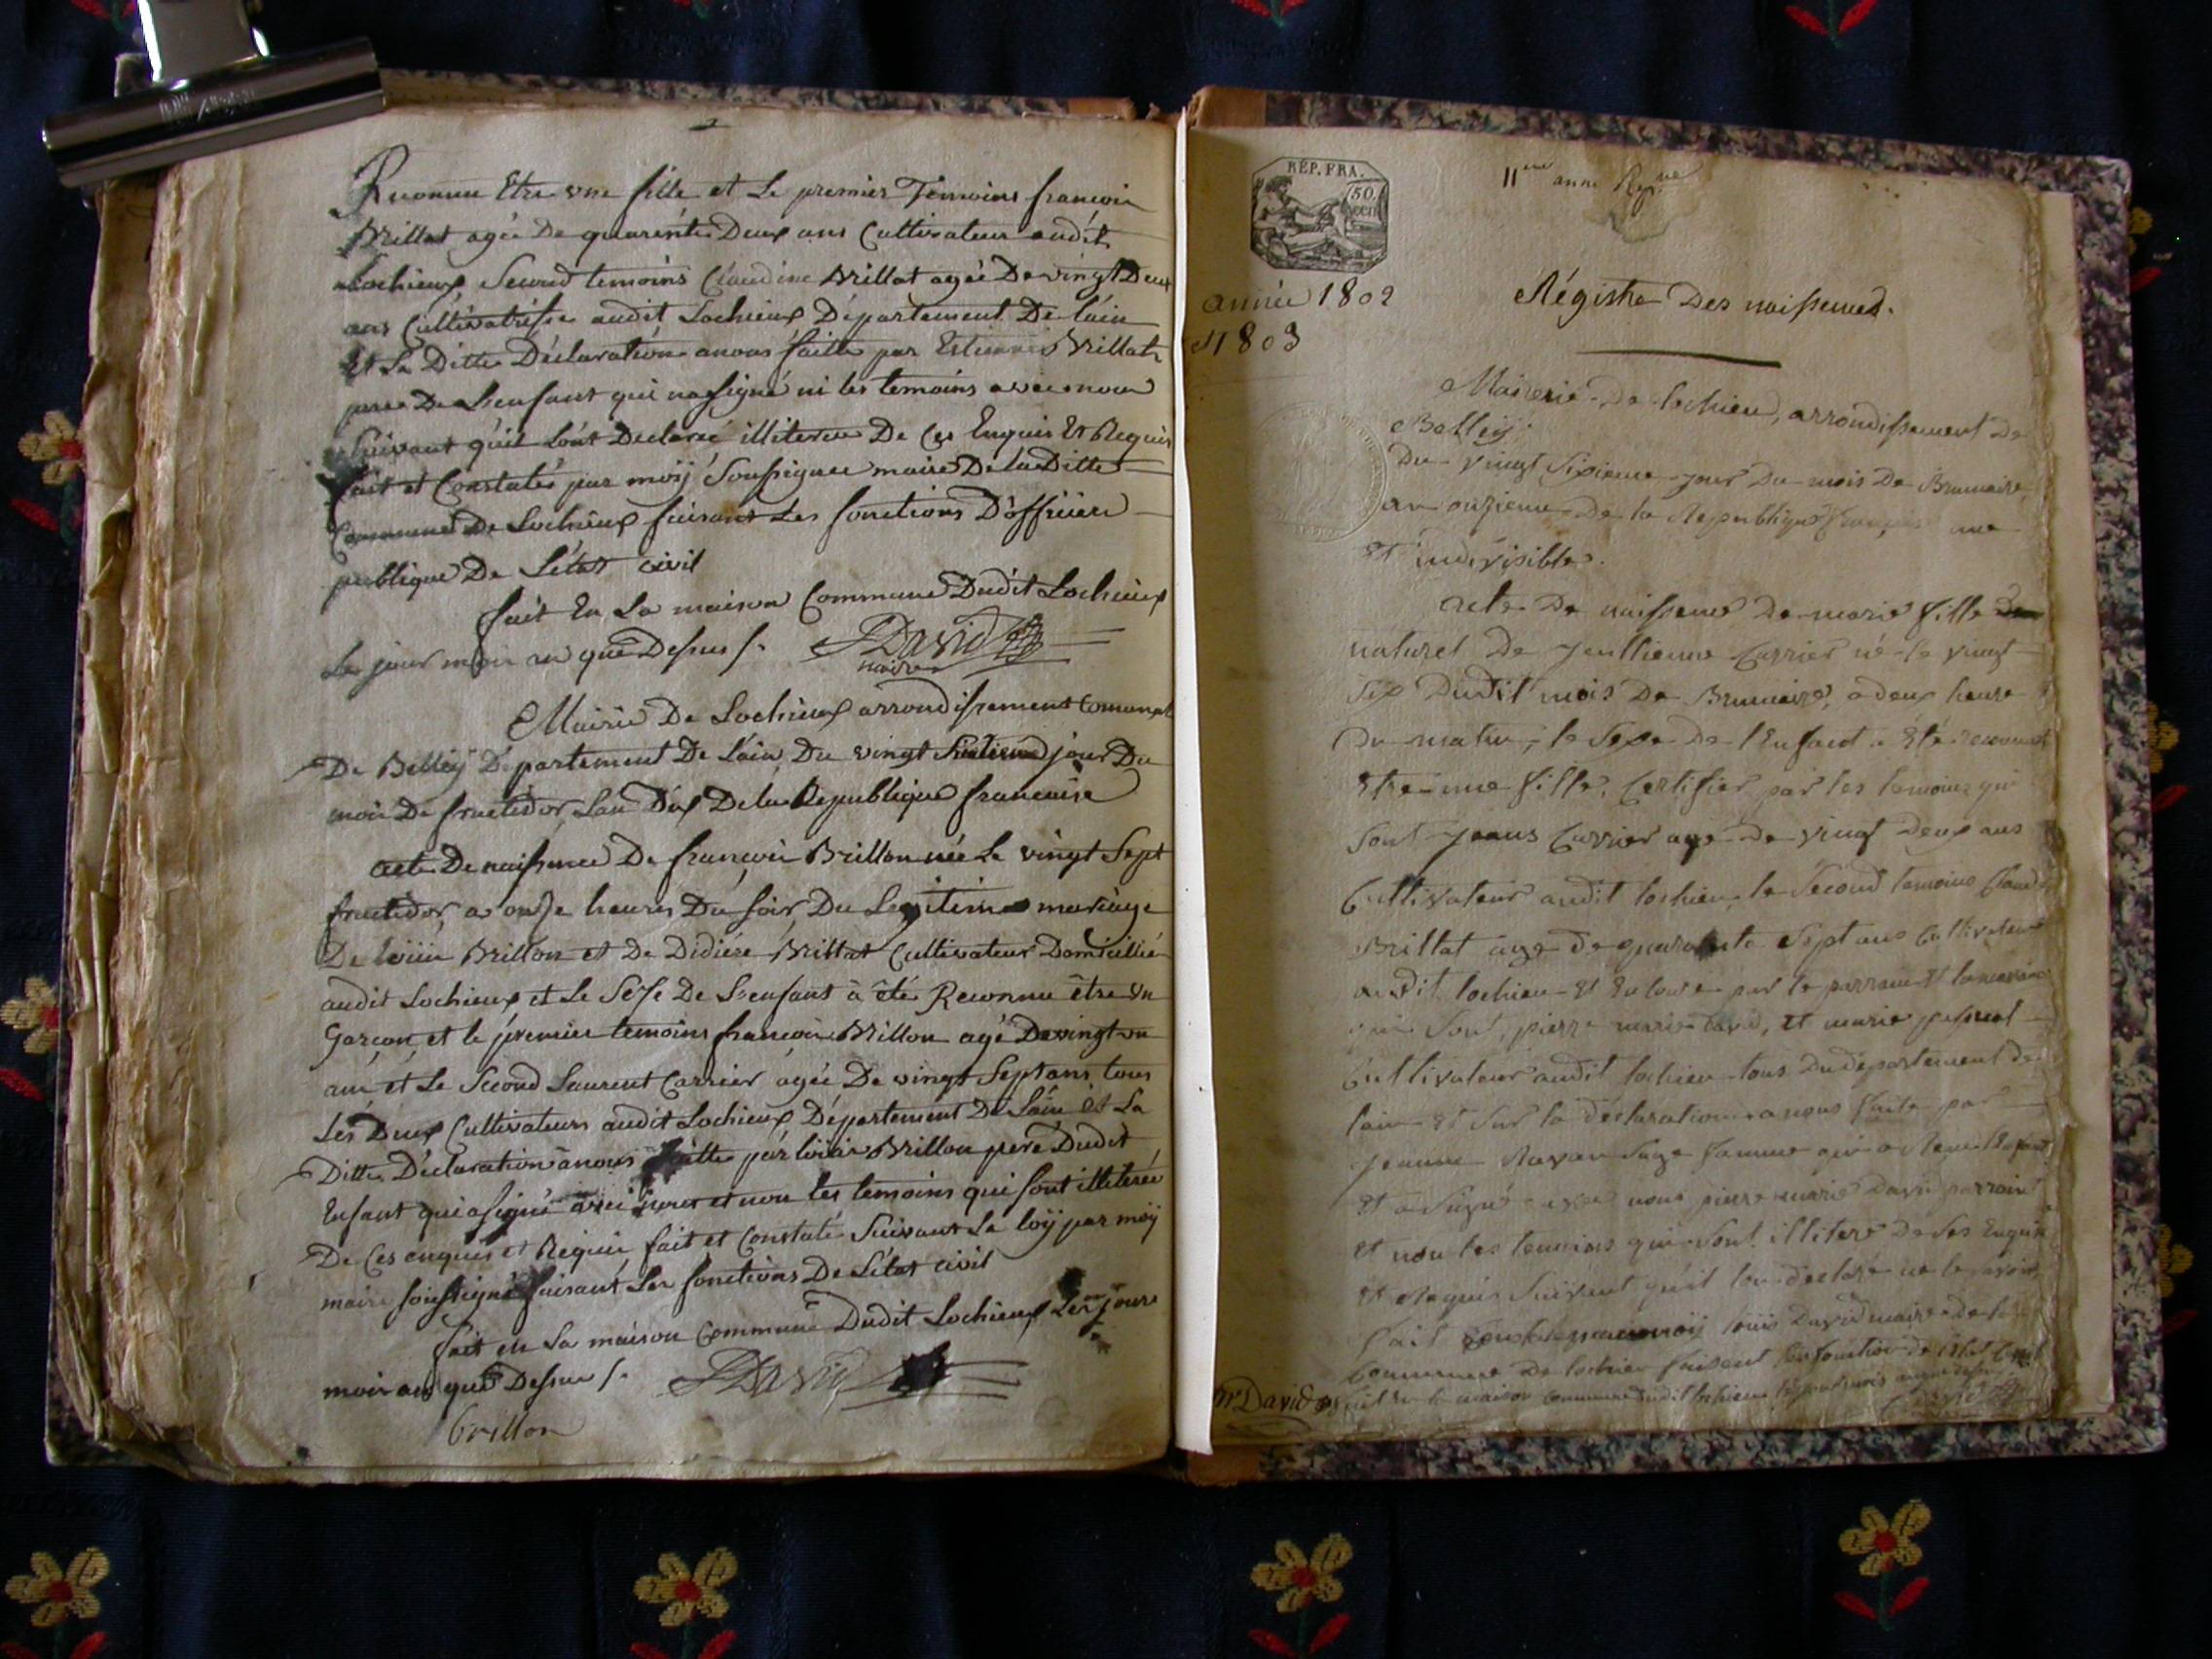 Reconnu Etre une fille et Le premier Temoins francois
Brillat agée De quarénte Deux ans Cultivateur audit
Lochieux Second temoins Claudine Brillat agée De vingt Deux
ans Cultivatrise audit Lochieux Département De lain
et La Ditte Déclaration anous faitte par Estienne Brillat
pere De Lenfant qui na signé ni les temoins avec nous
Suivant quil Lont Declaré illiteree De Ces Enquis Et Requis
fait et Constatés par moÿ Soussignee maire De La Ditte
Commune De Lochieux faisant Les fonctions D'officier
publique De L'état civil
fait En La maison Commune Dudit Lochieux
Le jour mois an que Dessus /. David
maire
Mairie De Lochieux arrondissement comunal
De Belleÿ Département De Lain Du vingt jour Du
mois De fructidor Lan Dix De la Republique francaise
acte De naissance De francois Brillon née Le vingt Sept
fructidor a onse heures Du soir Du Legitime mariage
De Loüis Brillon et De Didiere Brillat Cultivateur Domicillié
audit Lochieux et Le Sexe De L'enfant à été Reconnu être un
Garcon et le premier temoins francois Brillon agé De vingt un
ans et Le Second Laurent Carrier agée De vingt Sept ans tous
Les Deux Cultivateurs audit Lochieux Département De Lain et La
Ditte Déclaration anous faitte par Loüis Brillon pere Dudit
Enfant qui a signé avec nous et non les temoins qui sont illiterée
De Ces enquis et Requis fait et Constaté Suivant La loÿ par moÿ
maire soussigné faisant Les fonctions De L'état civil
fait en La maison Commune Dudit Lochieux Les jours
mois an que Dessus /. David
brillon
RÉP. FRA.
50.
CEN
11eme anne Rep.ne
année 1802
et 1803
Régistre Des naissences.
Mairerie De lochieu, arrondissement De
Belleÿ.
Du vingt Sixieme jour Du mois De Brumaire,
an onzieme De la Republique une
Et indivisible.
acte De naissence De marie fille
naturel De Carrier né le vingt
Six Dudit mois De Brumaire, a deux heure
Du matin, le Sexe De l'Enfant a Été reconnut
Etre une fille, Certifier par les temoins qui
Sont Carrier agé De vingt Deux ans
Cultivateur audit lochieu, le Second temoins Claude
Brillat age De quarante Sept ans Cultivateur
audit lochieu Et par le parrain Et la maraine
qui Sont, pierre marie David, Et marie
Cultivateur audit lochieu tous Du département De
lain Et Sur la déclaration a nous faite par
jeanne Sage famme qui a
Et a Signé avec nous pierre marie David parrain
Et non les temoins qui Sont illiteré De Ses Enquis
Et Requis Suivent quil lon déclaré ne le savoir
fait loüis David maire De la
Commune De lochieu faisent les fonction De l'état Civil
fait En la maison commune Dudit lochieu
David